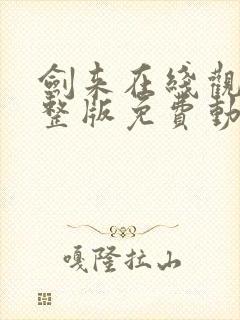 劍来在綫觀
整版免費動
嘎隆拉山